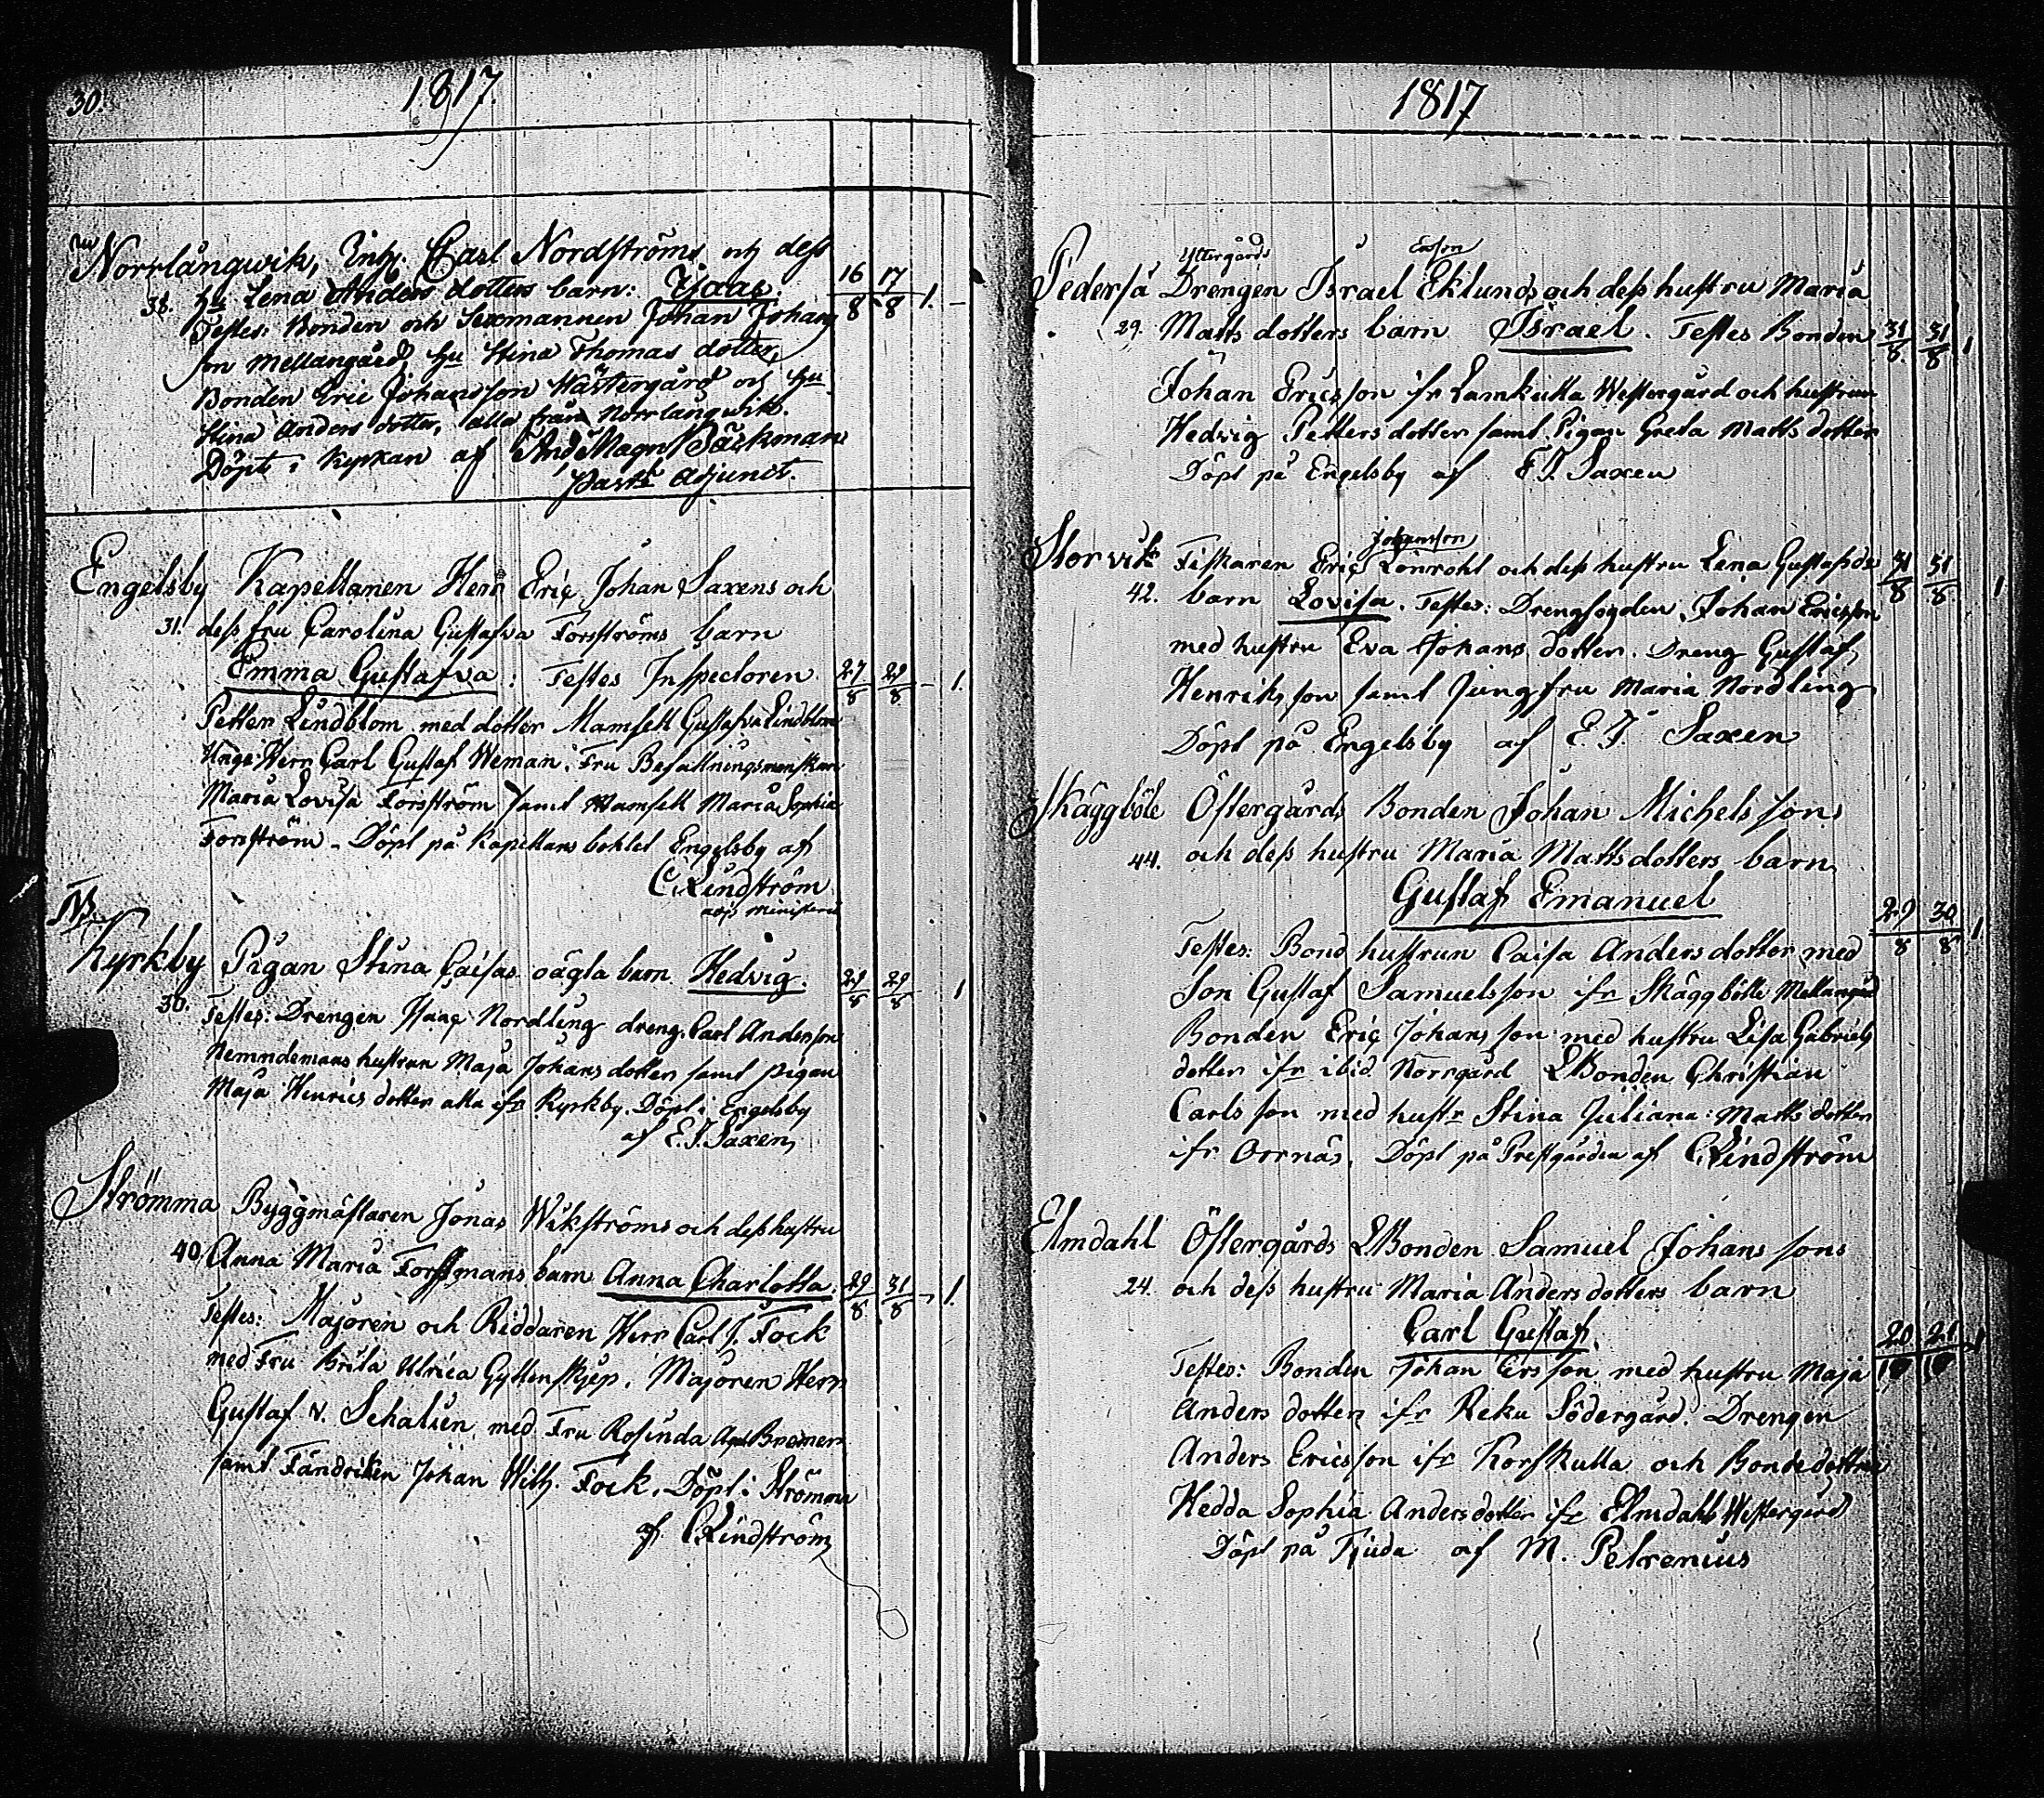 30.
1817.
Norrlångwik, Inh. Carl Nordströms och dess
38. Hu Lena Anders dotters barn: Isaac. 16/8 17/8 1.
Testes: Bonden och Sexmannen Johan Johans
son Mellangård, Hu Stina Thomas dotter,
Bonden Eric Johansson Wästergård och Hu
Stina Anders dotter, alla från Norrlångwik.
Döpt i Kyrkan af And. Magn. Bäckman
Past: Adjunct.
Engelsby Kapellanen Herr Eric Johan Saxens och
31. dess fru Carolina Gustafva Forsströms barn
Emma Gustafva. Testes Inspectoren 27/8 29/8 1.
Petter Lindblom med dotter Mamsell Gustafva Lindblom
Unge Herr Carl Gustaf Weman. Fru Befallningsmanskan
Maria Lovisa Forsström samt Mamsell Maria Sophia
Forsström. Döpt på Kapellans bohlet Engelsby af
C. Lindström
adj. ministerii
NB.
Kyrkby Pigan Stina Caisas oägta barn Hedvig. 29/8 29/8 1
30. Testes: Drengen Isaac Nordling dreng. Carl Andersson
Nemndemans hustrun Maja Johans dotter samt pigan
Maja Henrics dotter alla ifr Kyrkby. Döpt i Engelsby
af E. J. Saxen
Strömma Byggmästaren Jonas Wikströms och dess hustru
40. Anna Maria Forssmans barn Anna Charlotta. 29/8 31/8 1.
Testes: Majoren och Riddaren Herr Carl J. Fock
med Fru Brita Ulrica Gyllenskjep. Majoren Herr
Gustaf v. Schalien med Fru Rosinda Bremer
samt Fändriken Johan Wilh. Fock. Döpt i Strömma
af C. Lindström
1817
Yttergårds Ersson
Pederså Drengen Israel Eklunds och dess hustru Maria
29. Matts dotters barn Israel. Testes Bonden 31/8 31/8 1
Johan Ericsson ifr Lamkulla Westergård och hustrun
Hedvig Petters dotter samt Pigan Greta Matts dotter
Döpt på Engelsby af E. J. Saxen
Johansson
Storvik Fiskaren Eric Lönroht och dess hustru Lena Gustafsds 31/8 31/8 1
42. barn Lovisa. Testes: Drengfogden Johan Ericsson
med hustru Eva Johans dotter. Dreng Gustaf
Henriks son samt Jungfru Maria Nordling
Döpt på Engelsby af E. J. Saxen
Skäggböle Östergårds Bonden Johan Michels sons
44. och dess hustru Maria Mattsdotters barn
Gustaf Emanuel 29/8 30/8 1
Testes: Bond hustrun Caisa Anders dotter med
Son Gustaf Samuelsson ifr Skäggbölle Mellangård
Bonden Eric Johans son med hustru Lisa Gabriels
dotter ifr ibid Norrgård LBonden Christian
Carls son med hustr Stina Juliana Matts dotter
ifr Orrnäs. Döpt på Prestgården af C. Lindström
Elmdahl Östergårds LBonden Samuel Johans sons
24. och dess hustru Maria Anders dotters barn
Carl Gustaf. 20/10 21/10 1
Testes: Bonden Johan Ersson med hustru Maja
Anders dotter ifr Reku Södergård. Drengen
Anders Ericsson ifr Korskulla och Bondedottren
Hedda Sophia Andersdotter ifr Elmdahls Westergård
Döpt på Tjuda af M. Petrenius